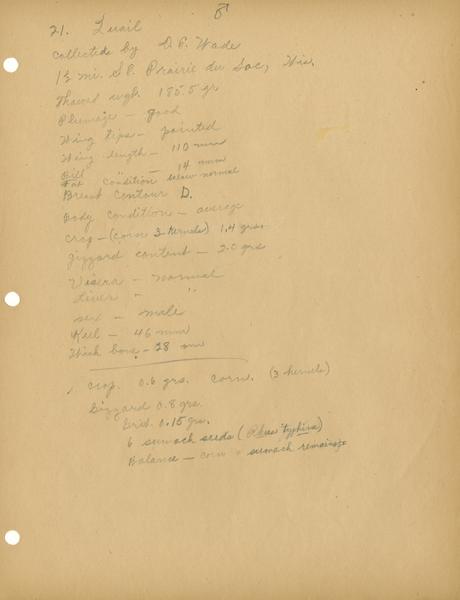 ♂
21. Quail
Collected by D.E. Wade
1½ mi. S.E. Prairie du Sac, Wis.
Thawed wgh. 185.5 gr
Plumage - good
Wing tips - pointed
Wing length - 110 mm
Bill - 14 mm
Fat condition below normal
Breast contour D.
Body condition - average
Crop - (corn 3 kernels) 1.4 grs.
gizzard content - 2.0 grs
Visera - normal
Liver " "
sex - male
Keel - 46 mm
Thick bone - 28 mm
Crop. 0.6 grs. corn. (3 kernels)
Gizzard 0.8 grs.
Grit 0.15 grs.
6 sumach seeds (Rhus typhina)
Balance - corn + sumach remains